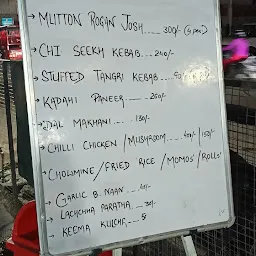 → MUTTON ROGAN JOSH .... 300/- (4 pcs)
→ CHI SEEKH KEBAB ... 240/-
→ STUFFED TANGRI KEBAB
→ KADAHI PANEER ------ 250/-
→ DAL MAKHANI ----- 130/-
→ CHILLI CHICKEN / MUSHROOM ... / 150/-
→ CHOWMINE / FRIED RICE / MOMOS / ROLLS
→ GARLIC B. NAAN
→ LACHCHHA PARATHA
→ KEEMA KULCHA